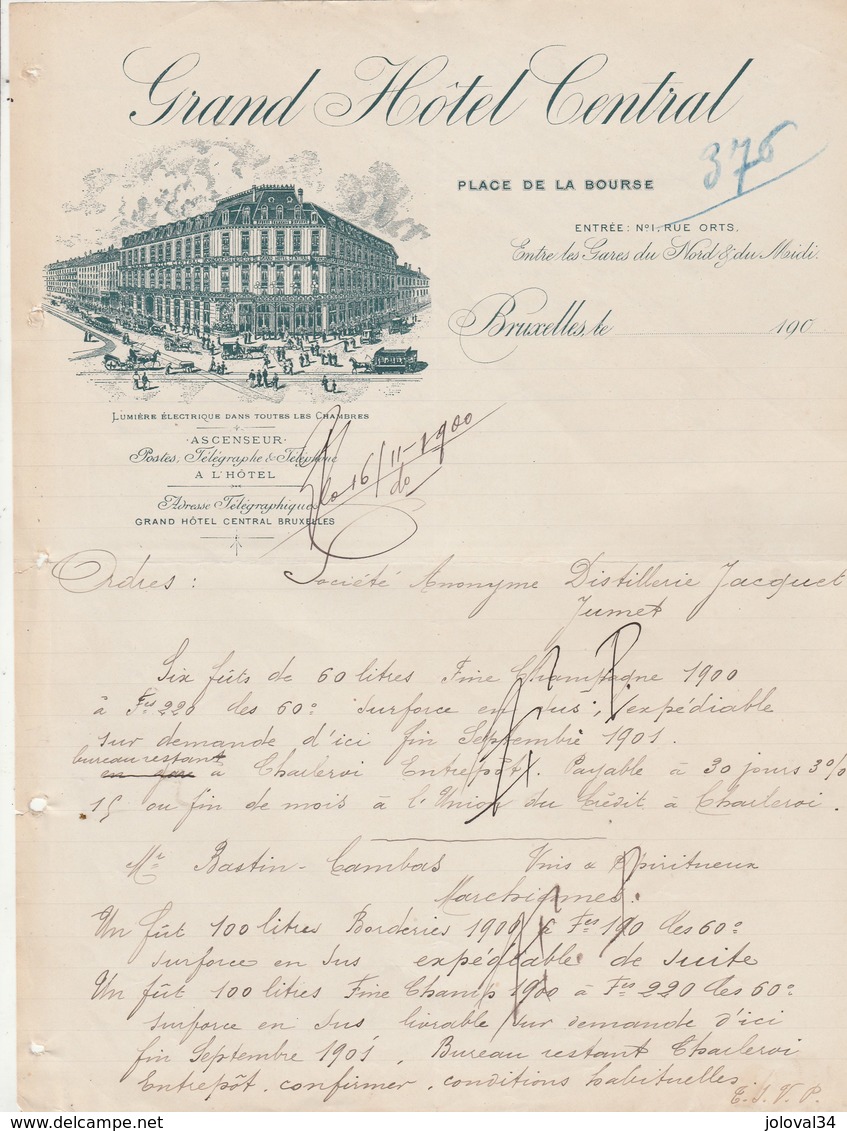 Grand Hôtel Central
376
PLACE DE LA BOURSE
ENTRÉE: Nº1, RUE ORTS,
Entre les Gares du Nord & du Midi.
Bruxelles, le 190
LUMIÈRE ÉLECTRIQUE DANS TOUTES LES CHAMBRES
ASCENSEUR
Postes, Télégraphe & Téléphone
A L'HÔTEL
Adresse Télégraphique
GRAND HÔTEL CENTRAL BRUXELLES
le 16/11-1900
do
Ordres : Société Anonyme Distillerie Jacquet
Jumet
Six fûts de 60 litres Fine Champagne 1900
à Fcs 220 les 60º surforce en sus, expédiable
sur demande d'ici fin Septembre 1901.
bureau restant
en gare à Charleroi Entrepôt. Payable à 30 jours 3%
15 ou fin de mois à l'Union du Crédit à Charleroi.
Mr Bastin-Cambas Vins & Spiritueux
Marchiennes.
Un fût 100 litres Borderies 1900 à Fcs 190 les 60º
surforce en sus expédiable de suite
Un fût 100 litres Fine Champ 1900 à Fcs 220 les 60º
surforce en sus livrable sur demande d'ici
fin Septembre 1901. Bureau restant Charleroi
Entrepôt. confirmer. conditions habituelles.
T.S.V.P.
joloval34
delcampe.net